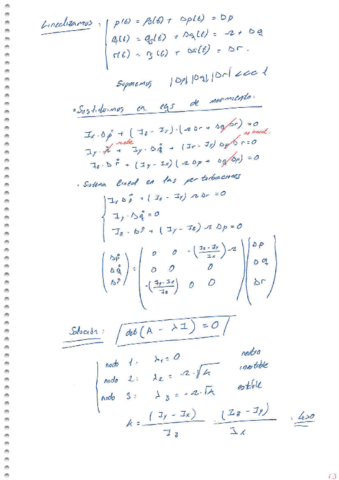 Linealizamos: p(t) = p₀(t) + Δp(t) = Δp
q(t) = q₀(t) + Δq(t) = -Ω + Δq
r(t) = r₀(t) + Δr(t) = Δr.
Suponemos |Δp| |Δq| |Δr| <<< 1
• Sustituimos en eqs de movimiento:
Ix·Δṗ + (Iz - Iy)·(-ΩΔr + ΔqΔr) = 0
Iy·Ω̇ + Iy·Δq̇ + (Ix - Iz) ΔpΔr = 0
Iz·Δṙ + (Iy - Ix)(-ΩΔp + ΔqΔp) = 0
• Sistema lineal en las perturbaciones
Ix Δṗ + (Iz - Iy) ΩΔr = 0
Iy·Δq̇ = 0
Iz·Δṙ + (Iy - Ix) ΩΔp = 0
(Δṗ) = (0 0 -((Iz-Iy)/Ix)·Ω) (Δp)
(Δq̇) (0 0 0) (Δq)
(Δṙ) (-((Iy-Ix)/Iz) 0 0) (Δr)
Solución: det(A - λI) = 0
modo 1: λ₁ = 0 neutro
modo 2: λ₂ = Ω·√k inestable
modo 3: λ₃ = -Ω·√k estable
k = (Iy - Ix)/Iz · (Iz - Iy)/Ix . k>0